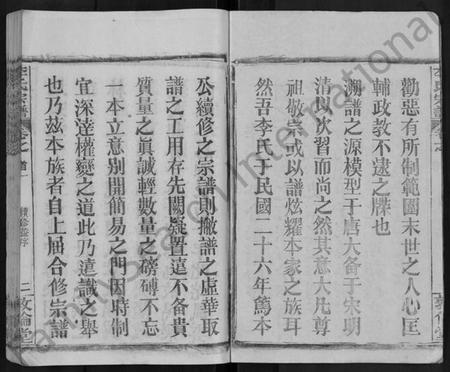 勸惡有所制範圍未世之人心匡
輔政教不逮之牒也
溯譜之源模型于唐大备于宋明
清以次習而尚之然其意大凡尊
祖敬宗或以譜炫耀本家之族耳
然吾李氏于民國二十六年篤本
公續修之宗譜則撇譜之虛華取
譜之工用存先闕疑置這不备貴
質量之眞誠輕數量之磅礡不忘
一本立意别開簡易之門因時制
宜深達權變之道此乃遠識之舉
也乃玆本族者自上届合修宗譜
李氏宗譜 卷之首 續修譜序 二 敦倫堂
FamilySearch International